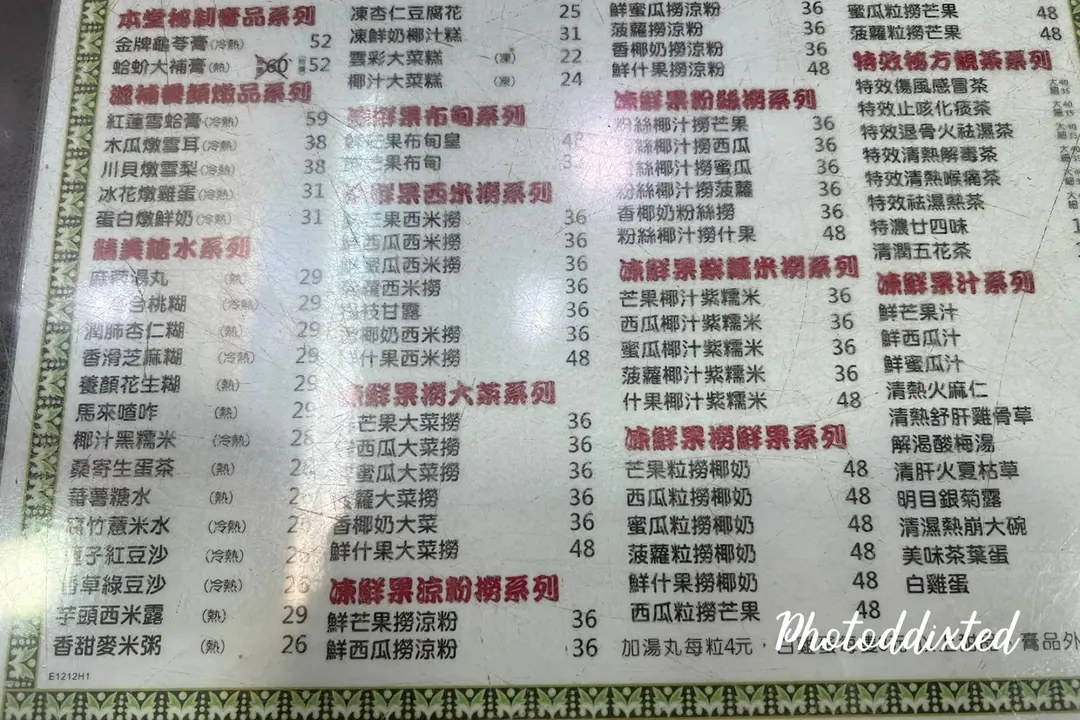 本堂秘制膏品系列
金牌龜苓膏(冷熱) 52
蛤蚧大補膏(熱) 60 52
滋補養顏燉品系列
紅蓮雪蛤膏(冷熱) 59
木瓜燉雪耳(冷熱) 38
川貝燉雪梨(冷熱) 38
冰花燉雞蛋(冷熱) 31
蛋白燉鮮奶(冷熱) 31
精美糖水系列
麻蓉湯丸 (熱) 29
合桃糊 (冷熱) 29
潤肺杏仁糊 (熱) 29
香滑芝麻糊 (冷熱) 29
養顏花生糊 (熱) 29
馬來喳咋 (熱) 29
椰汁黑糯米 (冷熱) 28
桑寄生蛋茶 (熱)
蕃薯糖水 (熱)
腐竹薏米水 (冷熱)
子紅豆沙 (冷熱) 26
香草綠豆沙 (冷熱) 26
芋頭西米露 (熱) 29
香甜麥米粥 (熱) 26
E1212H1
凍杏仁豆腐花 25
凍鮮奶椰汁糕 31
雲彩大菜糕 (凍) 22
椰汁大菜糕 (凍) 24
凍鮮果布甸系列
鮮芒果布甸皇 48
芒果布甸
凍鮮果西米撈系列
鮮芒果西米撈 36
鮮西瓜西米撈 36
鮮蜜瓜西米撈 36
菠蘿西米撈 36
楊枝甘露 36
香椰奶西米撈 36
鮮什果西米撈 48
凍鮮果撈大菜系列
鮮芒果大菜撈 36
鮮西瓜大菜撈 36
鮮蜜瓜大菜撈 36
菠蘿大菜撈 36
香椰奶大菜 36
鮮什果大菜撈 48
凍鮮果涼粉撈系列
鮮芒果撈涼粉 36
鮮西瓜撈涼粉 36
鮮蜜瓜撈涼粉 36
菠蘿撈涼粉 36
香椰奶撈涼粉 36
鮮什果撈涼粉 48
凍鮮果粉絲撈系列
粉絲椰汁撈芒果 36
粉絲椰汁撈西瓜 36
粉絲椰汁撈蜜瓜 36
粉絲椰汁撈菠蘿 36
香椰奶粉絲撈 36
粉絲椰汁撈什果 48
凍鮮果紫糯米撈系列
芒果椰汁紫糯米 36
西瓜椰汁紫糯米 36
蜜瓜椰汁紫糯米 36
菠蘿椰汁紫糯米 36
什果椰汁紫糯米 48
凍鮮果撈鮮果系列
芒果粒撈椰奶 48
西瓜粒撈椰奶 48
蜜瓜粒撈椰奶 48
菠蘿粒撈椰奶 48
鮮什果撈椰奶 48
西瓜粒撈芒果 48
蜜瓜粒撈芒果 48
菠蘿粒撈芒果 48
特效秘方靚茶系列
特效傷風感冒茶 大40 細35
特效止咳化痰茶 大40 細35
特效退骨火祛濕茶 大40 細35
特效清熱解毒茶 大40
特效清熱喉痛茶 大
特效祛濕熱茶 大 細
特濃廿四味
清潤五花茶
凍鮮果汁系列
鮮芒果汁
鮮西瓜汁
鮮蜜瓜汁
清熱火麻仁
清熱舒肝雞骨草
解渴酸梅湯
清肝火夏枯草
明目銀菊露
清濕熱崩大碗
美味茶葉蛋
白雞蛋
加湯丸每粒4元，
膏品外
Photoddixted